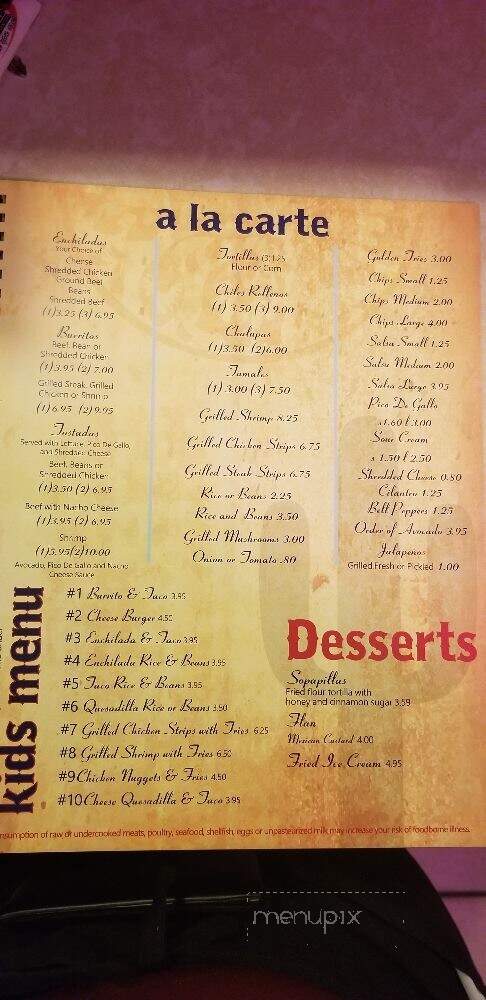 a la carte
Enchiladas
Your Choice of
Cheese
Shredded Chicken
Ground Beef
Beans
Shredded Beef
(1)3.25 (3) 6.95
Burritos
Beef, Bean or
Shredded Chicken
(1)3.95 (2) 7.00
Grilled Steak, Grilled
Chicken or Shrimp
(1)6.95 (2)9.95
Tostadas
Served with Lettuce, Pico De Gallo,
and Shredded Cheese
Beef, Beans or
Shredded Chicken
(1)3.50 (2) 6.95
Beef with Nacho Cheese
(1)3.95 (2) 6.95
Shrimp
(1)5.95(2)10.00
Avocado, Pico De Gallo and Nacho
Cheese Sauce
Tortillas (3)1.25
Flour or Corn
Chiles Rellenos
(1) 3.50 (3) 9.00
Chalupas
(1)3.50 (2)6.00
Tamales
(1) 3.00 (3) 7.50
Grilled Shrimp 8.25
Grilled Chicken Strips 6.75
Grilled Steak Strips 6.75
Rice or Beans 2.25
Rice and Beans 3.50
Grilled Mushrooms 3.00
Onion or Tomato .80
Golden Fries 3.00
Chips Small 1.25
Chips Medium 2.00
Chips Large 4.00
Salsa Small 1.25
Salsa Medium 2.00
Salsa Large 3.95
Pico De Gallo
s 1.60 l 3.00
Sour Cream
s 1.50 l 2.50
Shredded Cheese 0.80
Cilantro 1.25
Bell Peppers 1.25
Order of Avocado 3.95
Jalapenos
Grilled Fresh or Pickled 1.00
kids menu
#1 Burrito & Taco 3.95
#2 Cheese Burger 4.50
#3 Enchilada & Taco 3.95
#4 Enchilada Rice & Beans 3.95
#5 Taco Rice & Beans 3.95
#6 Quesadilla Rice or Beans 3.50
#7 Grilled Chicken Strips with Fries 6.25
#8 Grilled Shrimp with Fries 6.50
#9 Chicken Nuggets & Fries 4.50
#10 Cheese Quesadilla & Taco 3.95
Desserts
Sopapillas
Fried flour tortilla with
honey and cinnamon sugar 3.59
Flan
Mexican Custard 4.00
Fried Ice Cream 4.95
nsumption of raw or undercooked meats, poultry, seafood, shellfish, eggs or unpasteurized milk may increase your risk of foodborne illness.
menupix